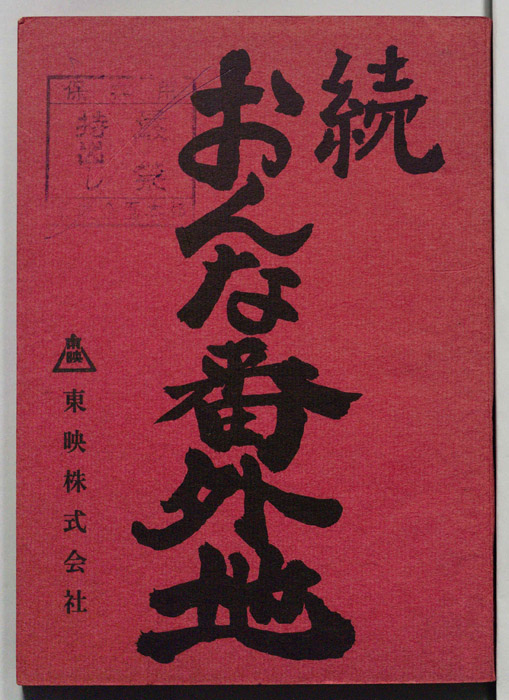 続
おんな番外地
東映
東映株式会社
持出し